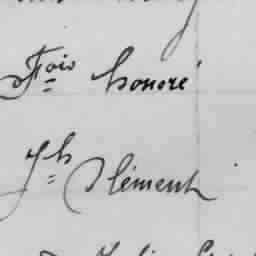 Fois honoré
Jh Clément